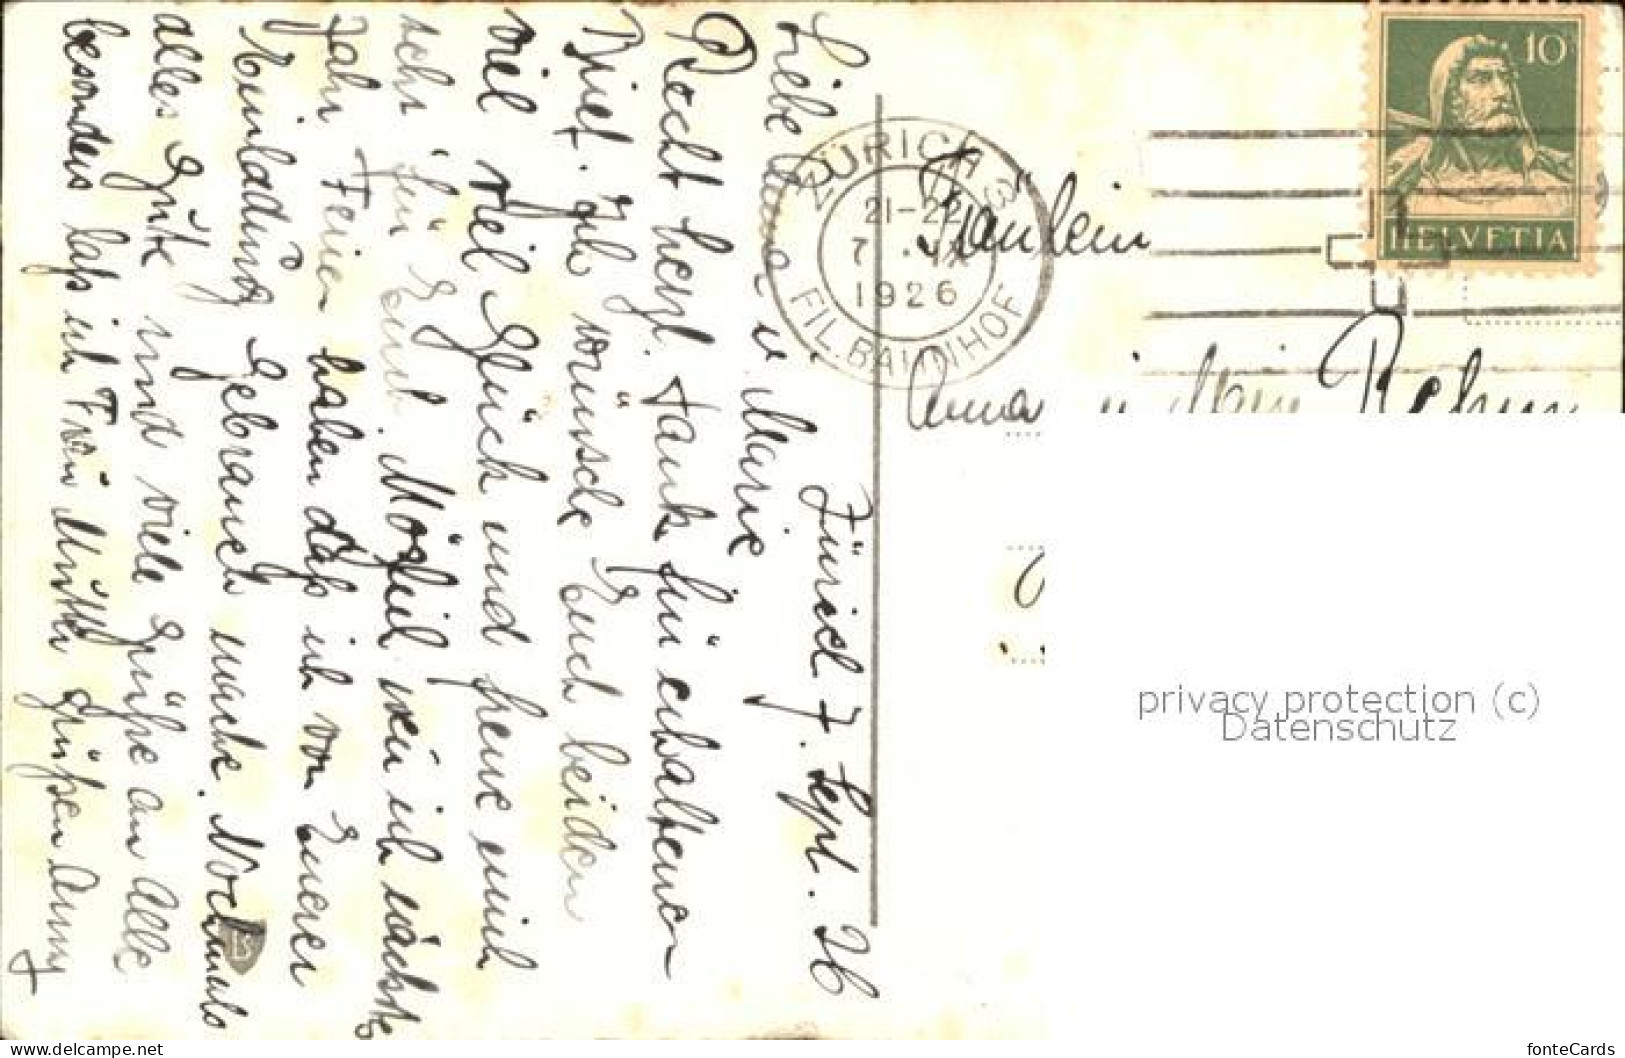 Zürich 7. Sept. 26
Liebe Anna u. Marie
Recht herzl. Dank für erhaltenen
Brief. Ich wünsche Euch beiden
viel viel Glück und freue mich
sehr für Euch. Möglich
Jahr Ferien haben daß ich von Euerer
Einladung Gebrauch mache. Nochmals
alles Gute und viele Grüße an Alle
besonders laß ich Frau Mutter grüßen Anny
ZÜRICH
21-22
1926
FIL. BAHNHOF
10
HELVETIA
Fräulein
Anna
privacy protection (c)
Datenschutz
www.delcampe.net
fonteCards